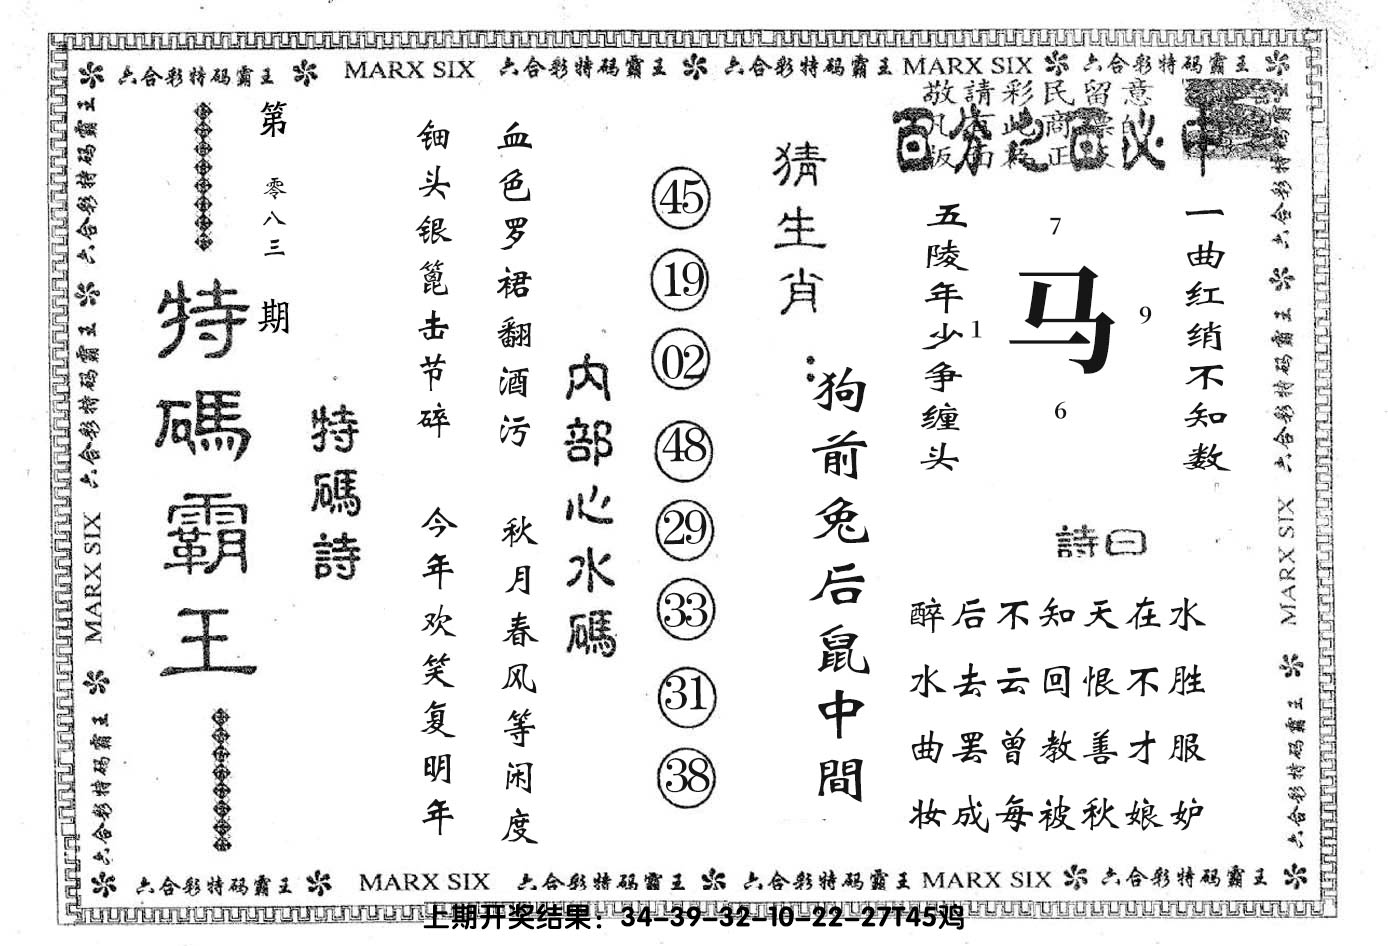 六合彩特码霸王 MARX SIX 六合彩特码霸王 六合彩特码霸王 MARX SIX 六合彩特码霸王
敬請彩民留意
百分之百必中
一曲红绡不知数
7
1
马
9
6
五陵年少争缠头
詩曰
醉后不知天在水
水去云回恨不胜
曲罢曾教善才服
妆成每被秋娘妒
猜生肖:
狗前兔后鼠中間
45
19
02
48
29
33
31
38
内部心水碼
血色罗裙翻酒污
秋月春风等闲度
钿头银篦击节碎
今年欢笑复明年
特碼詩
第零八三期
特碼霸王
六合彩特码霸王 六合彩特码霸王 MARX SIX 六合彩特码霸王
六合彩特码霸王 六合彩特码霸王 MARX SIX 六合彩特码霸王
六合彩特码霸王 MARX SIX 六合彩特码霸王 六合彩特码霸王 MARX SIX 六合彩特码霸王
上期开奖结果：34-39-32-10-22-27T45鸡